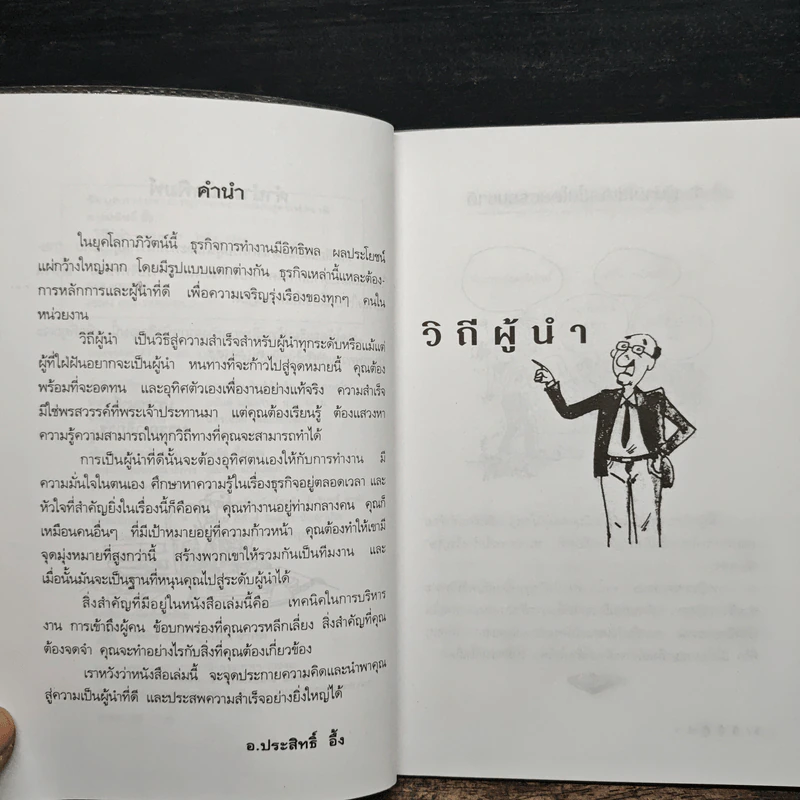 คำนำ
ในยุคโลกาภิวัตน์นี้ ธุรกิจการทำงานมีอิทธิพล ผลประโยชน์
แผ่กว้างใหญ่มาก โดยมีรูปแบบแตกต่างกัน ธุรกิจเหล่านี้แหละต้อง-
การหลักการและผู้นำที่ดี เพื่อความเจริญรุ่งเรืองของทุกๆ คนใน
หน่วยงาน
วิถีผู้นำ เป็นวิธีสู่ความสำเร็จสำหรับผู้นำทุกระดับหรือแม้แต่
ผู้ที่ใฝ่ฝันอยากจะเป็นผู้นำ หนทางที่จะก้าวไปสู่จุดหมายนี้ คุณต้อง
พร้อมที่จะอดทน และอุทิศตัวเองเพื่องานอย่างแท้จริง ความสำเร็จ
มิใช่พรสวรรค์ที่พระเจ้าประทานมา แต่คุณต้องเรียนรู้ ต้องแสวงหา
ความรู้ความสามารถในทุกวิถีทางที่คุณจะสามารถทำได้
การเป็นผู้นำที่ดีนั้นจะต้องอุทิศตนเองให้กับการทำงาน มี
ความมั่นใจในตนเอง ศึกษาหาความรู้ในเรื่องธุรกิจอยู่ตลอดเวลา และ
หัวใจที่สำคัญยิ่งในเรื่องนี้ก็คือคน คุณทำงานอยู่ท่ามกลางคน คุณก็
เหมือนคนอื่นๆ ที่มีเป้าหมายอยู่ที่ความก้าวหน้า คุณต้องทำให้เขามี
จุดมุ่งหมายที่สูงกว่านี้ สร้างพวกเขาให้รวมกันเป็นทีมงาน และ
เมื่อนั้นมันจะเป็นฐานที่หนุนคุณไปสู่ระดับผู้นำได้
สิ่งสำคัญที่มีอยู่ในหนังสือเล่มนี้คือ เทคนิคในการบริหาร
งาน การเข้าถึงผู้คน ข้อบกพร่องที่คุณควรหลีกเลี่ยง สิ่งสำคัญที่คุณ
ต้องจดจำ คุณจะทำอย่างไรกับสิ่งที่คุณต้องเกี่ยวข้อง
เราหวังว่าหนังสือเล่มนี้ จะจุดประกายความคิดและนำพาคุณ
สู่ความเป็นผู้นำที่ดี และประสพความสำเร็จอย่างยิ่งใหญ่ได้
อ.ประสิทธิ์ อึ้ง
วิถีผู้นำ